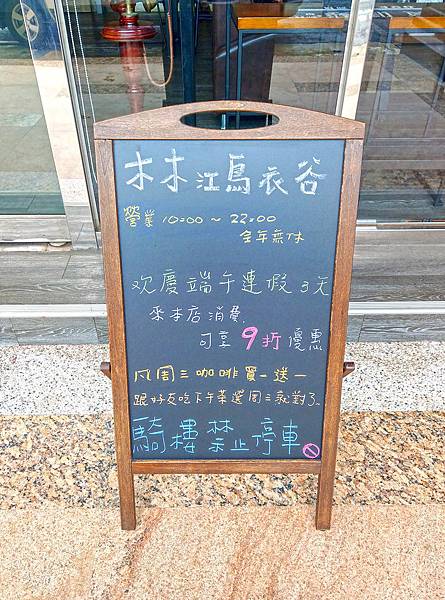 木木江鳥衣谷
營業 10:00 ~ 22:00
全年無休
欢慶端午連假3天
來本店消費
可享9折優惠
凡周三咖啡買一送一
跟好友吃下午茶選周三就對了
騎樓禁止停車